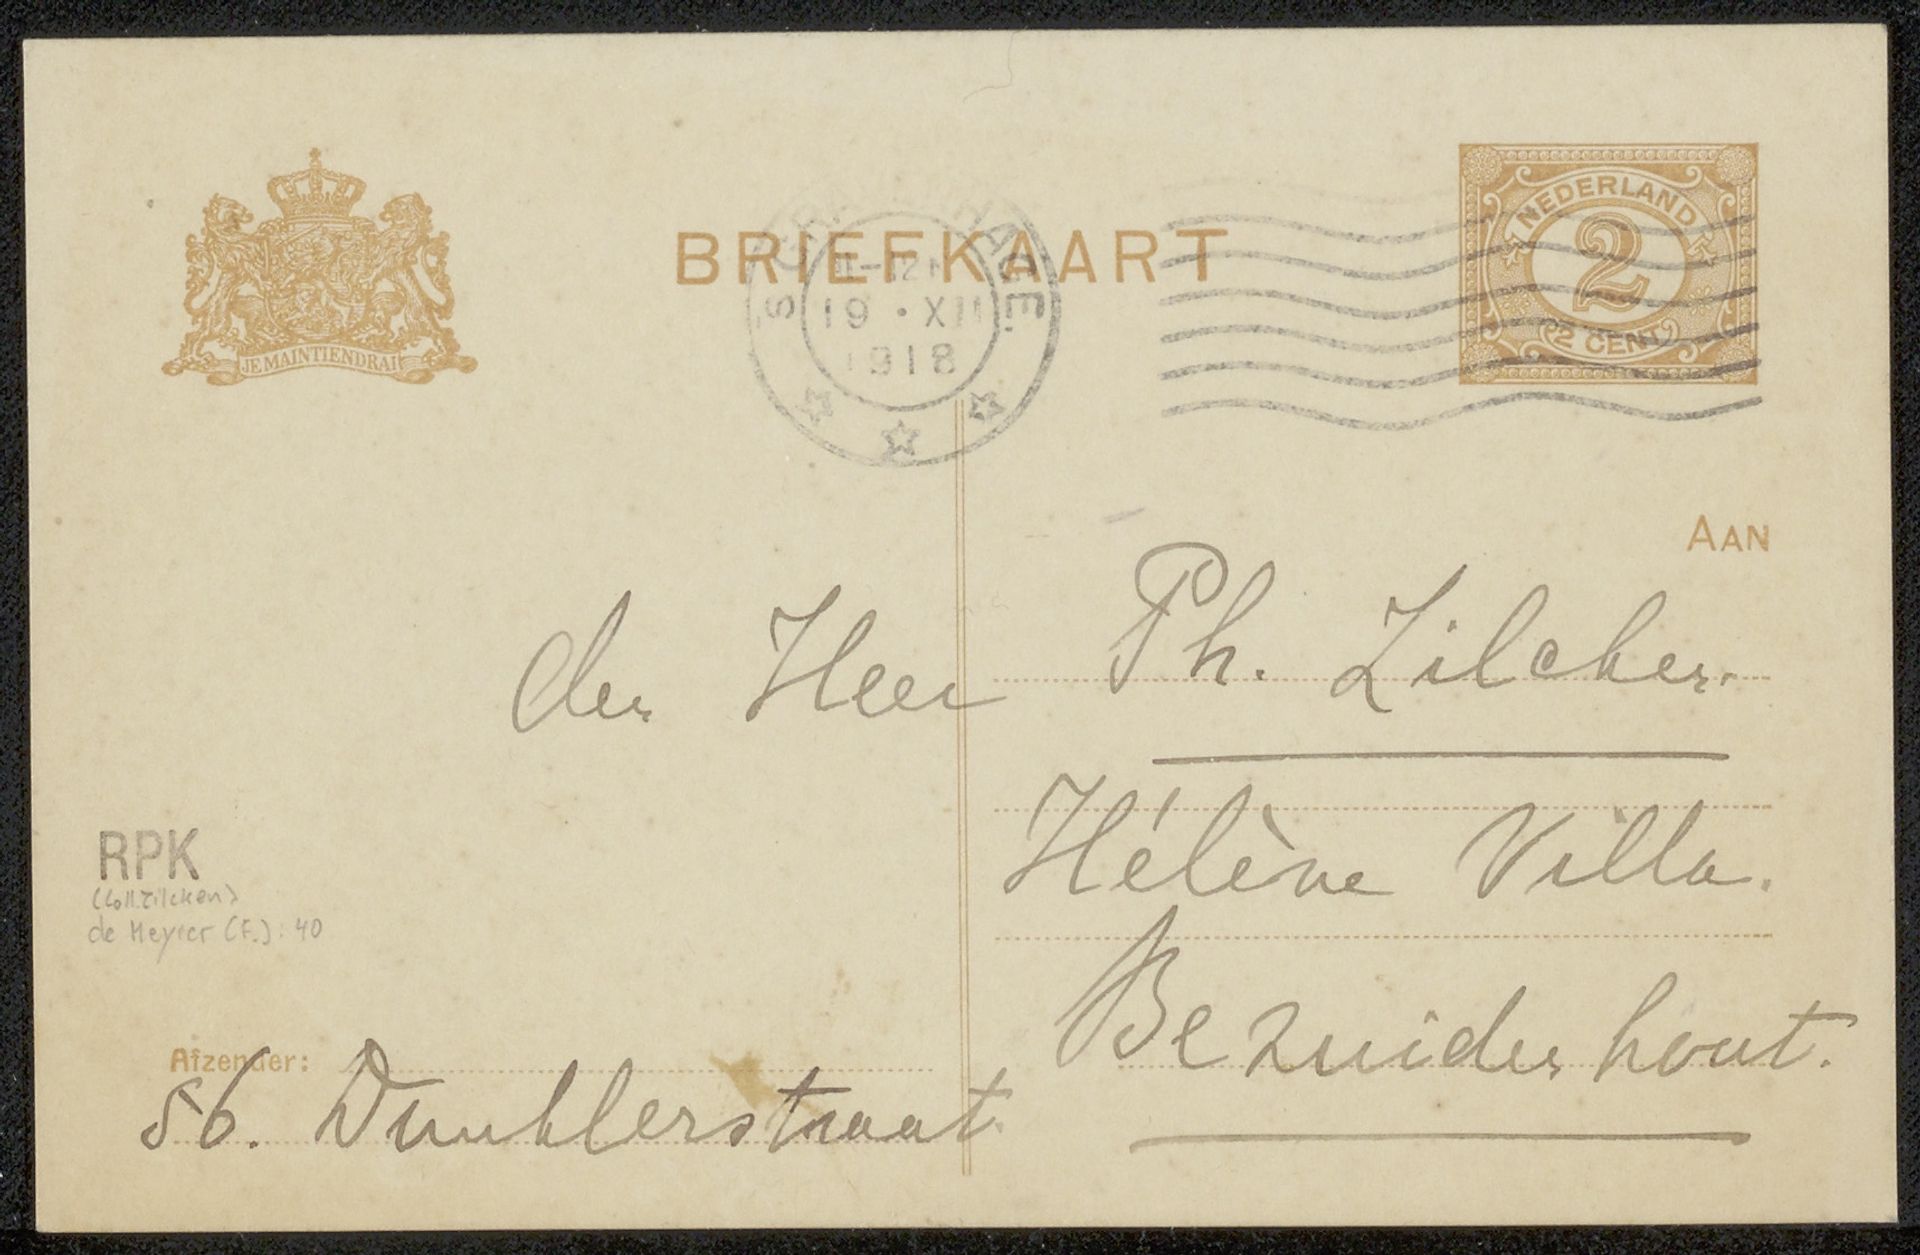 JE MAINTIENDRAI
BRIEFKAART
'S GRAVENHAGE
19 · XII
1918
NEDERLAND
2
2 CENT
AAN
den Heer Ph. Zilcken.
Hélène Villa.
Bezuidenhout.
RPK
(Coll. Zilcken)
de Meyier (F.): 40
Afzender:
56. Dunklerstraat.